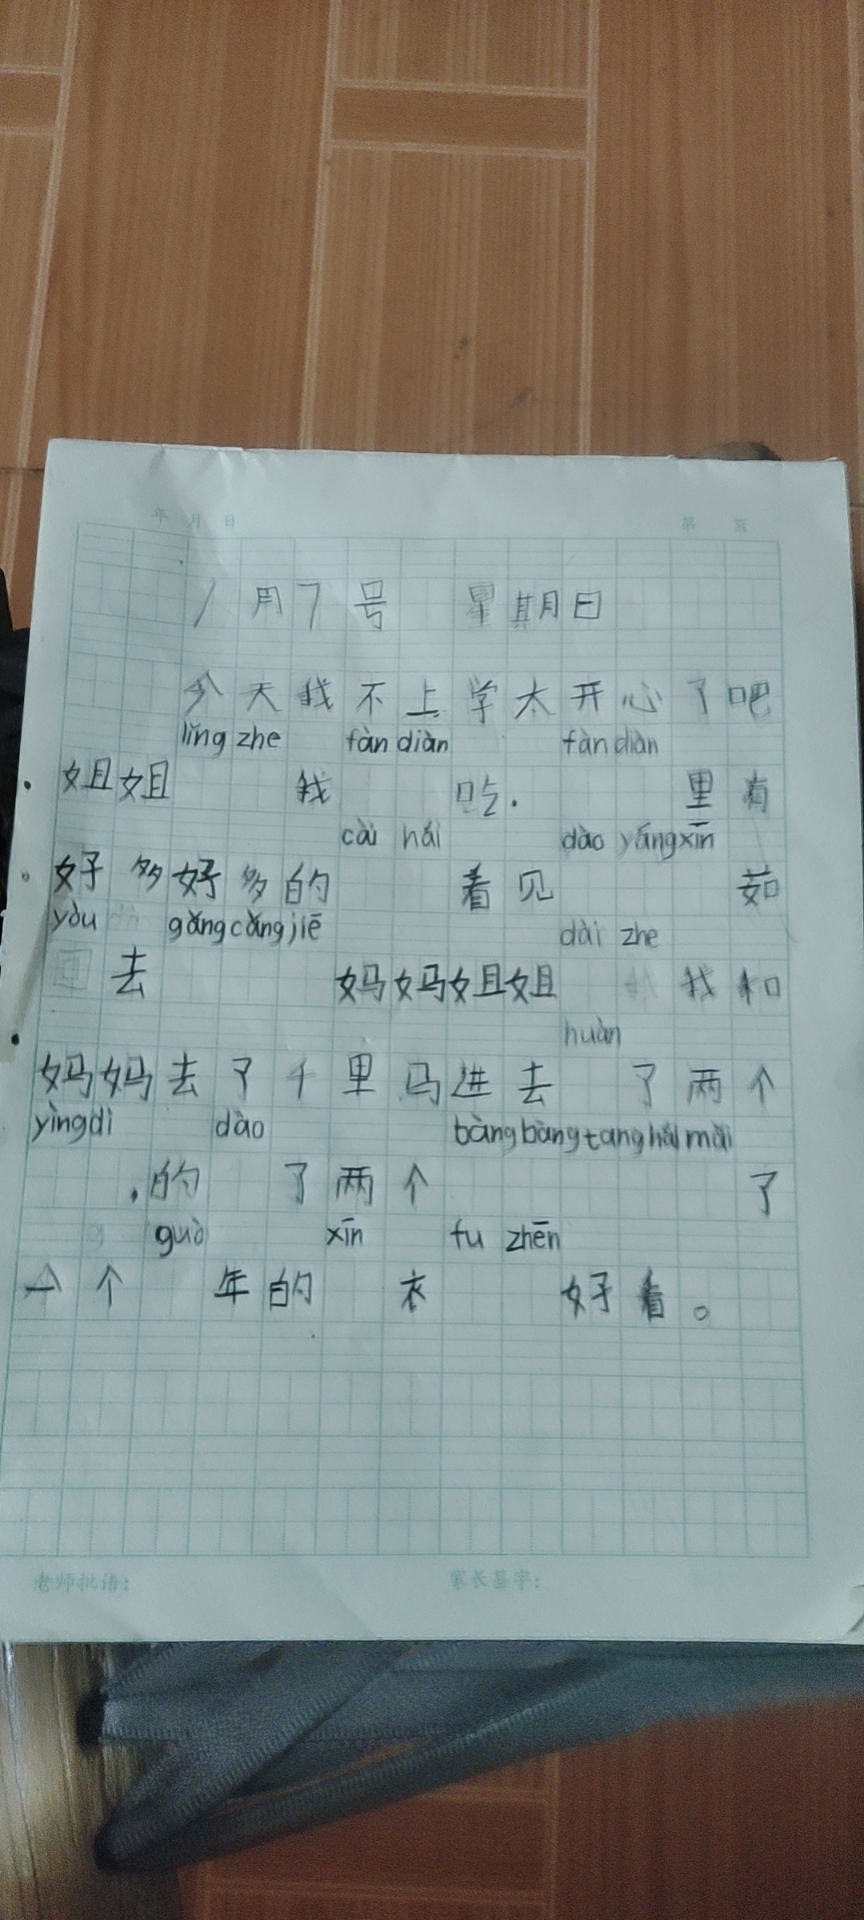 年 月 日 第 页
1月7号 星期日
今天我不上学太开心了吧
lǐng zhe fàn diàn fàn diàn
姐姐 我 吃. 里有
cài hái dào yáng xīn
好多好多的 看见 茹
yòu gǎng cǎng jiē dài zhe
去 妈妈姐姐 我和
huàn
妈妈去了千里马进去 了两个
yìng dì dào bàng bàng tang hái mǎi
,的 了两个 了
guò xīn fu zhēn
一个 年的 衣 好看。
老师批语: 家长签字: